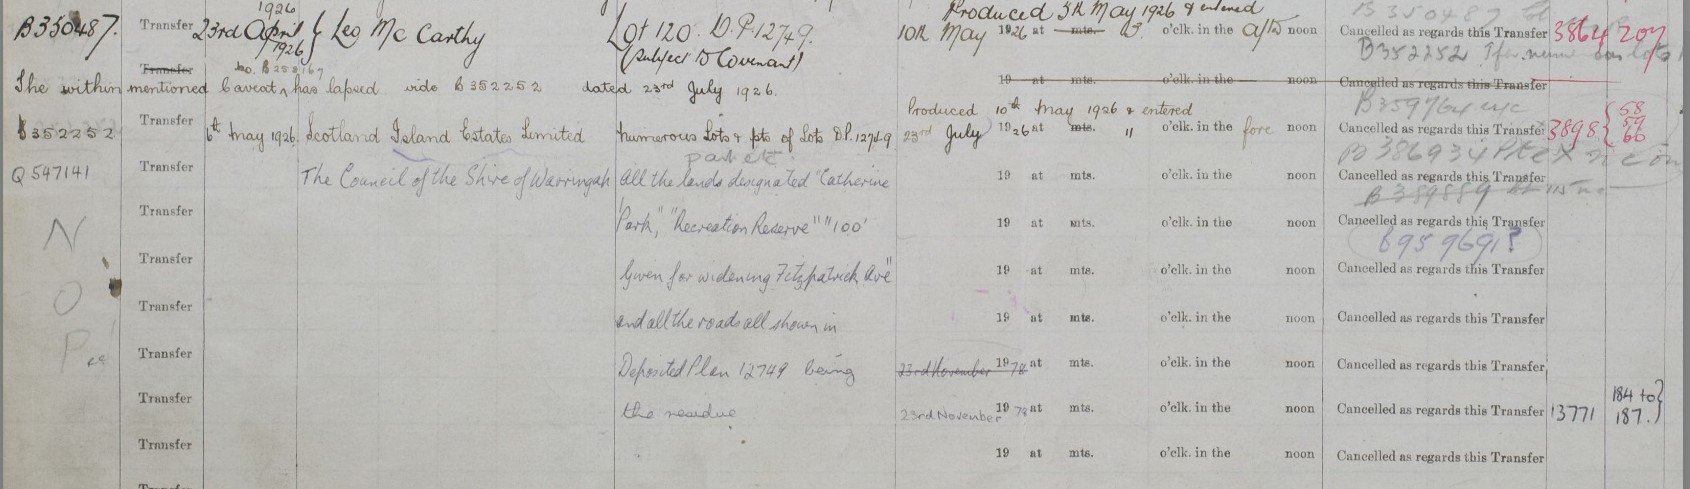 1926 Produced 5th May 1926 & entered B350487
B350487. Transfer 23rd April 1926 } Leo McCarthy Lot 120. D.P. 12749. 10th May 1926 at mts. 3 o'clk. in the after noon Cancelled as regards this Transfer 3864 207
(Subject to Covenant) B352252
Transfer no. B258167 19 at mts. o'clk. in the noon Cancelled as regards this Transfer
The within mentioned Caveat has lapsed vide B352252 dated 23rd July 1926.
Produced 10th May 1926 & entered B359764 58
B352252 Transfer 6th May 1926. Scotland Island Estates Limited numerous Lots & pts. of Lots D.P. 12749 23rd July 1926 at mts. 11 o'clk. in the fore noon Cancelled as regards this Transfer 3898 { 59
60
part etc B386934
Q547141 Transfer The Council of the Shire of Warringah all the lands designated "Catherine 19 at mts. o'clk. in the noon Cancelled as regards this Transfer
B389889
N Transfer Park," "Recreation Reserve" "100' 19 at mts. o'clk. in the noon Cancelled as regards this Transfer
B959691?
Transfer Given for widening Fitzpatrick Ave" 19 at mts. o'clk. in the noon Cancelled as regards this Transfer
O
Transfer and all the roads all shown in 19 at mts. o'clk. in the noon Cancelled as regards this Transfer
P
Transfer Deposited Plan 12749 being 23rd November 1978 at mts. o'clk. in the noon Cancelled as regards this Transfer
Transfer the residue 23rd November 1978 at mts. o'clk. in the noon Cancelled as regards this Transfer 13771 184 to }
187.
Transfer 19 at mts. o'clk. in the noon Cancelled as regards this Transfer